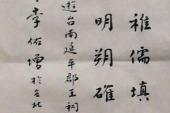 稚儒填
明朔確
遊台南延平郡王祠
李佑增於台北